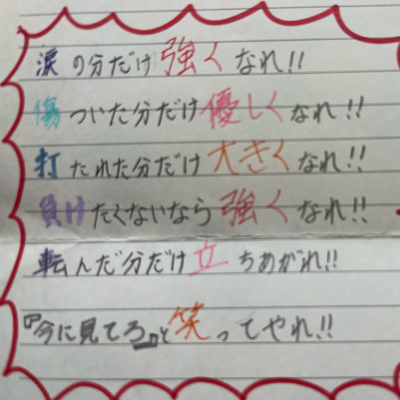 涙の分だけ強くなれ!!
傷ついた分だけ優しくなれ!!
打たれた分だけ大きくなれ!!
負けたくないなら強くなれ!!
転んだ分だけ立ちあがれ!!
『今に見てろ』と笑ってやれ!!